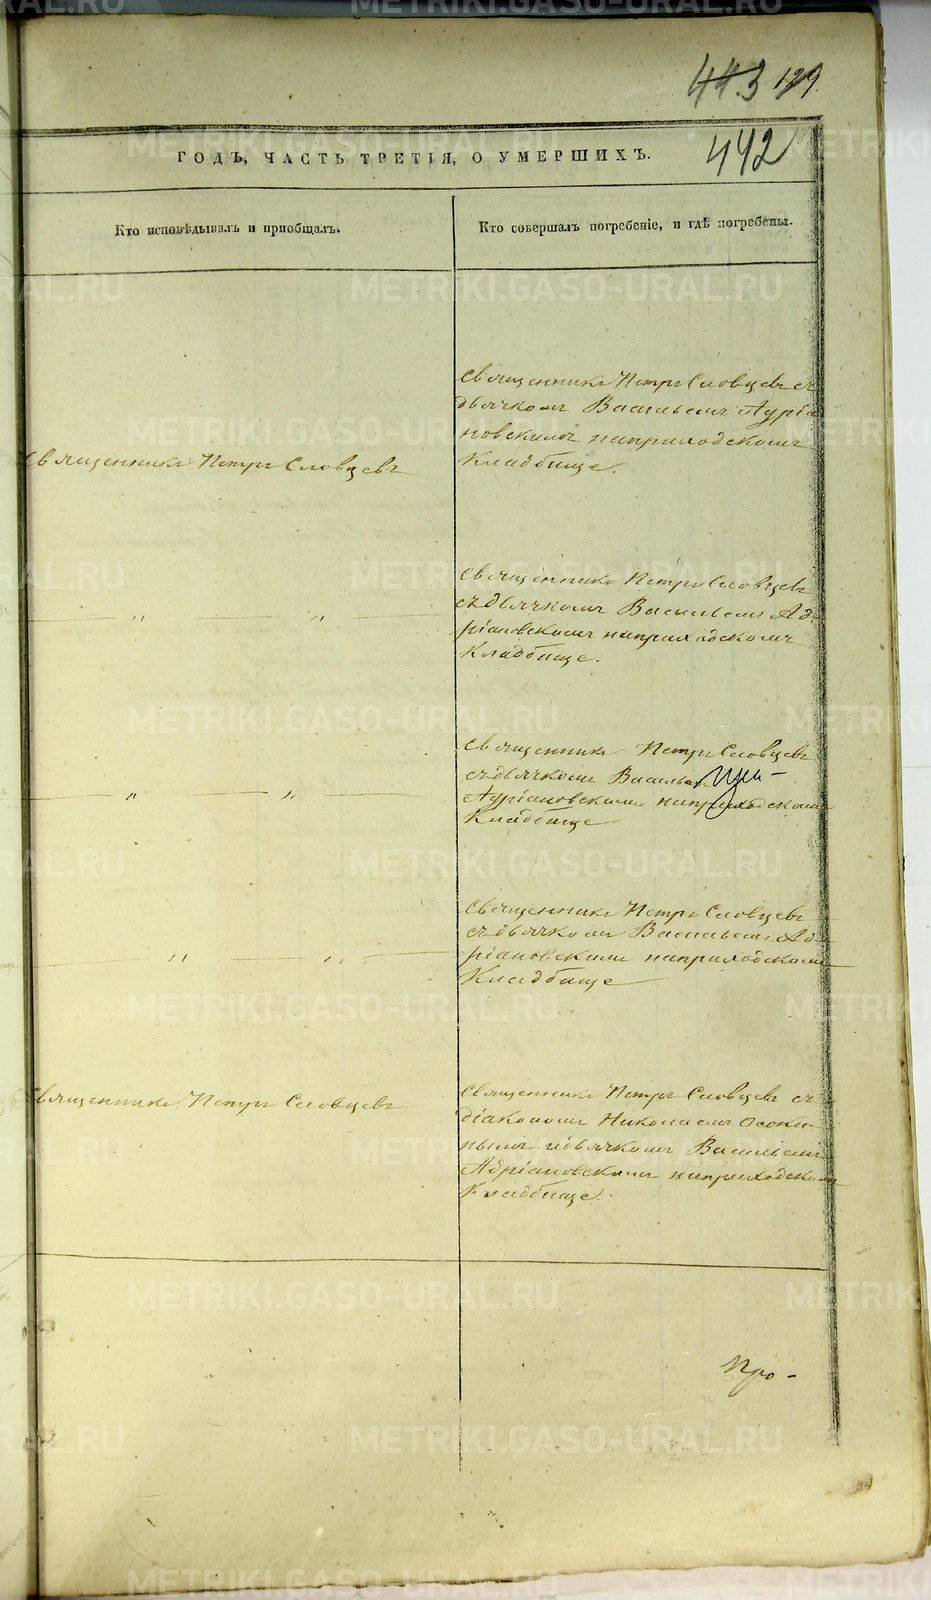 443 129.
442
ГОДЪ, ЧАСТЬ ТРЕТІЯ, О УМЕРШИХЪ.
Кто исповѣдывалъ и пріобщалъ.
Кто совершалъ погребеніе, и гдѣ погребены.
Священникъ Петръ Словцевъ
Священникъ Петръ Словцевъ съ
дьячкомъ Васильемъ Адріа
новскимъ наприходскомъ
Кладбище.
" "
Священникъ Петръ Словцевъ
съдьячкомъ Васильемъ Ад-
ріановскимъ наприходскомъ
Кладбище.
" "
Священникъ Петръ Словцевъ
съдьячкомъ Василье
Адріановскимъ наприходскомъ
Кладбище
" "
Священникъ Петръ Словцевъ
съдьячкомъ Васильемъ Ад-
ріановскимъ наприходскомъ
Кладбище
Священникъ Петръ Словцевъ
Священникъ Петръ Словцевъ съ
діакономъ Николаемъ Осоки-
нымъ идьячкомъ Васильемъ
Адріановскимъ наприходскомъ
Кладбище.
Про-
METRIKI.GASO-URAL.RU